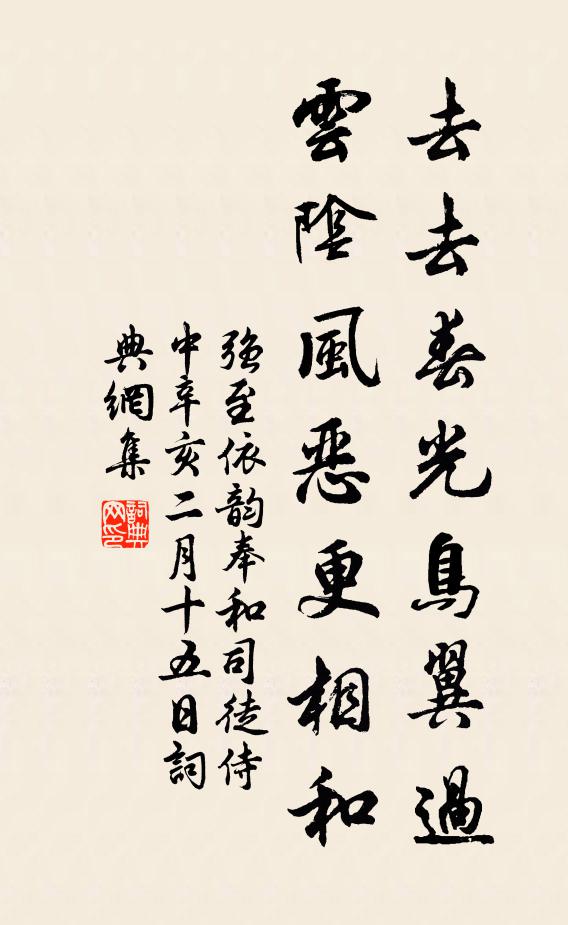 去去春光鳥翼過
雲陰風惡更相和
強至依韵奉和司徒侍
中辛亥二月十五日詞
典網集
詞典
网印